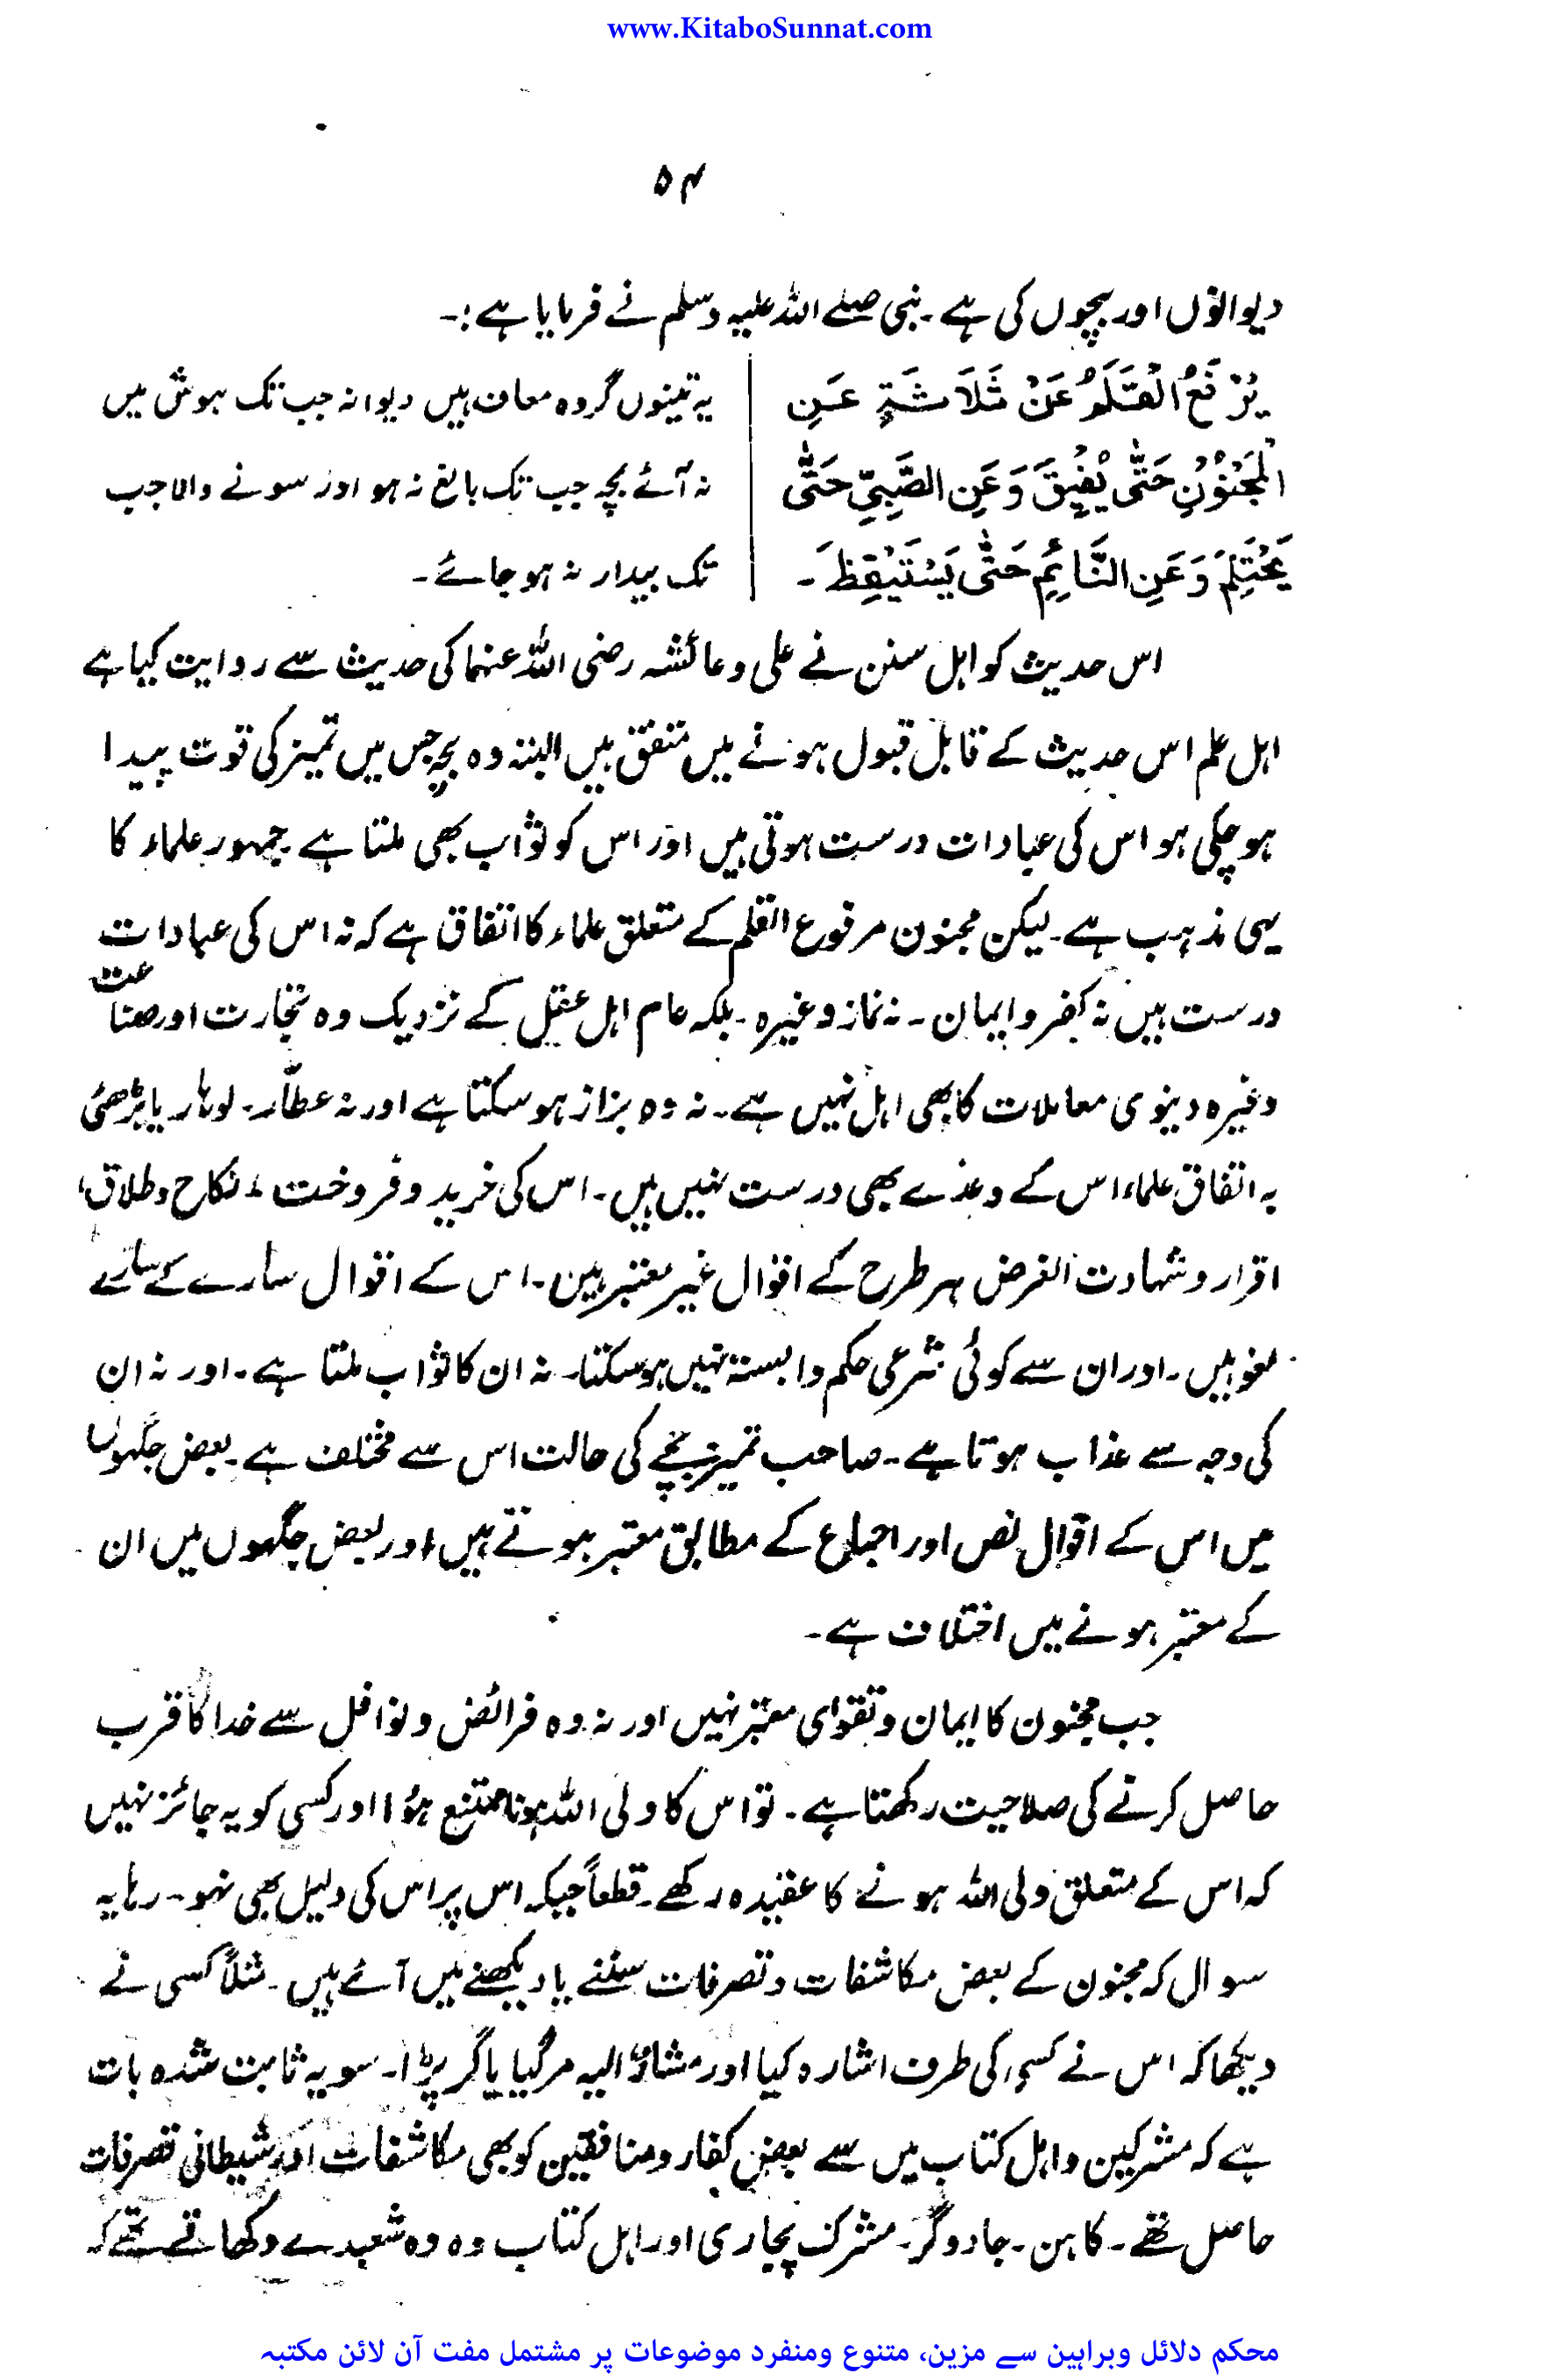 www.KitaboSunnat.com
۵۴
دیوانوں اور بچوں کی ہے۔ نبی صلے اللہ علیہ وسلم نے فرمایا ہے:۔
يُرْفَعُ الْقَلَمُ عَنْ ثَلَاثَةٍ عَنِ
الْمَجْنُوْنِ حَتّٰى يُفِيْقَ وَعَنِ الصَّبِيِّ حَتّٰى
يَحْتَلِمَ وَعَنِ النَّائِمِ حَتّٰى يَسْتَيْقِظَ۔
یہ تینوں گروہ معاف ہیں دیوانہ جب تک ہوش میں
نہ آئے بچہ جب تک بالغ نہ ہو اور سونے والا جب
تک بیدار نہ ہو جائے۔
اس حدیث کو اہل سنن نے علی و عائشہ رضی اللہ عنہما کی حدیث سے روایت کیا ہے
اہل علم اس حدیث کے قابل قبول ہونے میں متفق ہیں البتہ وہ بچہ جس میں تمیز کی قوت پیدا
ہو چکی ہو اس کی عبادات درست ہوتی ہیں اور اس کو ثواب بھی ملتا ہے۔ جمہور علماء کا
یہی مذہب ہے۔ لیکن مجنون مرفوع القلم کے متعلق علماء کا اتفاق ہے کہ نہ اس کی عبادات
درست ہیں نہ کفر و ایمان۔ نہ نماز وغیرہ۔ بلکہ عام اہل عقل کے نزدیک وہ تجارت اور صناعت
وغیرہ دینوی معاملات کا بھی اہل نہیں ہے۔ نہ وہ بزاز ہو سکتا ہے اور نہ عطّار۔ لوہار یا بڑھئی
بہ اتفاق علماء اس کے وعدے بھی درست نہیں ہیں۔ اس کی خرید و فروخت، نکاح و طلاق،
اقرار و شہادت الغرض ہر طرح کے اقوال غیر معتبر ہیں۔ اس کے اقوال سارے کے سارے
لغو ہیں۔ اور ان سے کوئی شرعی حکم وابستہ نہیں ہو سکتا۔ نہ ان کا ثواب ملتا ہے۔ اور نہ ان
کی وجہ سے عذاب ہوتا ہے۔ صاحب تمیز بچے کی حالت اس سے مختلف ہے۔ بعض جگہوں
میں اس کے اقوال نص اور اجماع کے مطابق معتبر ہوتے ہیں اور بعض جگہوں میں ان
کے معتبر ہونے میں اختلاف ہے۔
جب مجنون کا ایمان و تقوای معتبر نہیں اور نہ وہ فرائض و نوافل سے خدا کا قرب
حاصل کرنے کی صلاحیت رکھتا ہے۔ تو اس کا ولی اللہ ہونا ممتنع ہؤا اور کسی کو یہ جائز نہیں
کہ اس کے متعلق ولی اللہ ہونے کا عقیدہ رکھے۔ قطعاً جبکہ اس پر اس کی دلیل بھی نہو۔ رہا یہ
سوال کہ مجنون کے بعض مکاشفات و تصرفات سننے یا دیکھنے میں آئے ہیں۔ مثلاً کسی نے
دیکھا کہ اس نے کسی کی طرف اشارہ کیا اور مشارٌ الیہ مر گیا یا گر پڑا۔ سو یہ ثابت شدہ بات
ہے کہ مشرکین و اہل کتاب میں سے بعض کفار و منافقین کو بھی مکاشفات اور شیطانی تصرفات
حاصل تھے۔ کاہن۔ جادوگر۔ مشرک پجاری اور اہل کتاب وہ وہ شعبدے دکھاتے تھے کہ
محکم دلائل وبراہین سے مزین، متنوع ومنفرد موضوعات پر مشتمل مفت آن لائن مکتبہ